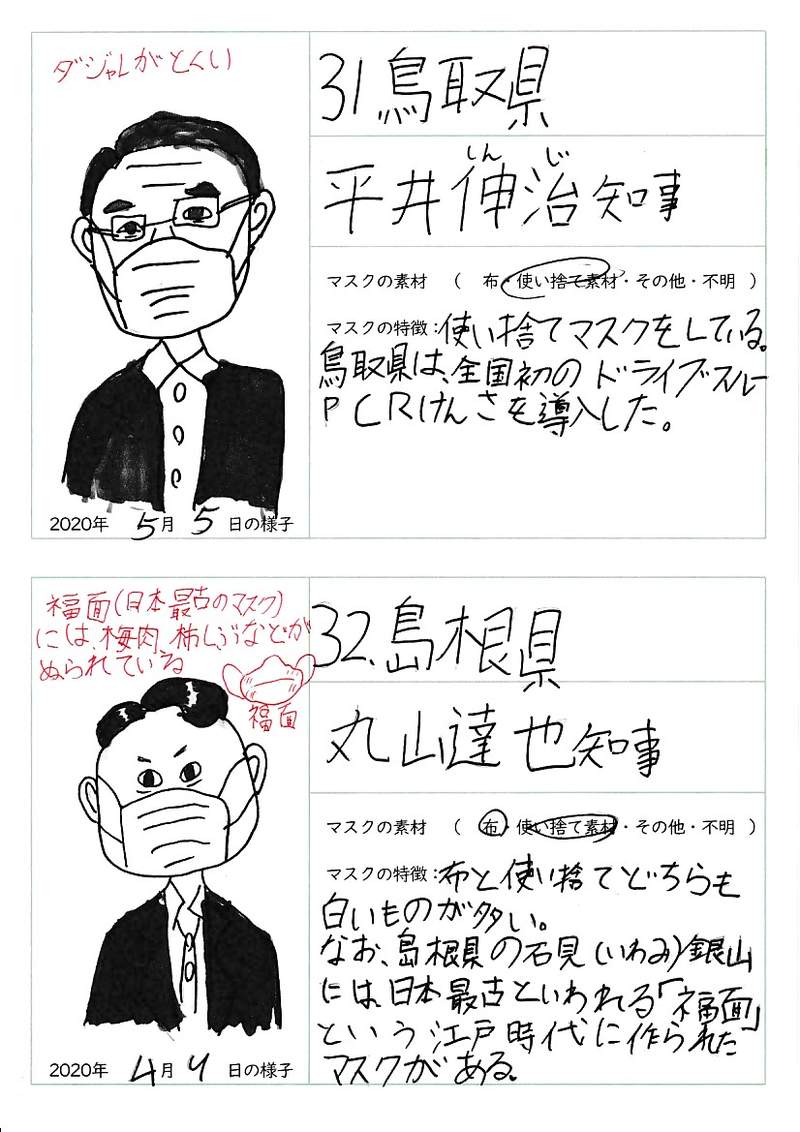 ダジャレがとくい
31鳥取県
しんじ
平井伸治知事
マスクの素材 ( 布・使い捨て素材・その他・不明 )
マスクの特徴:使い捨てマスクをしている。
鳥取県は、全国初のドライブスルー
PCRけんさを導入した。
2020年 5月 5日の様子
福面(日本最古のマスク)
には、梅肉、柿しぶなどが
ぬられている
福面
32.島根県
丸山達也知事
マスクの素材 ( 布・使い捨て素材・その他・不明 )
マスクの特徴:布と使い捨てどちらも
白いものが多い。
なお、島根県の石見(いわみ)銀山
には、日本最古といわれる「福面」
という江戸時代に作られた
マスクがある。
2020年 4月 4日の様子